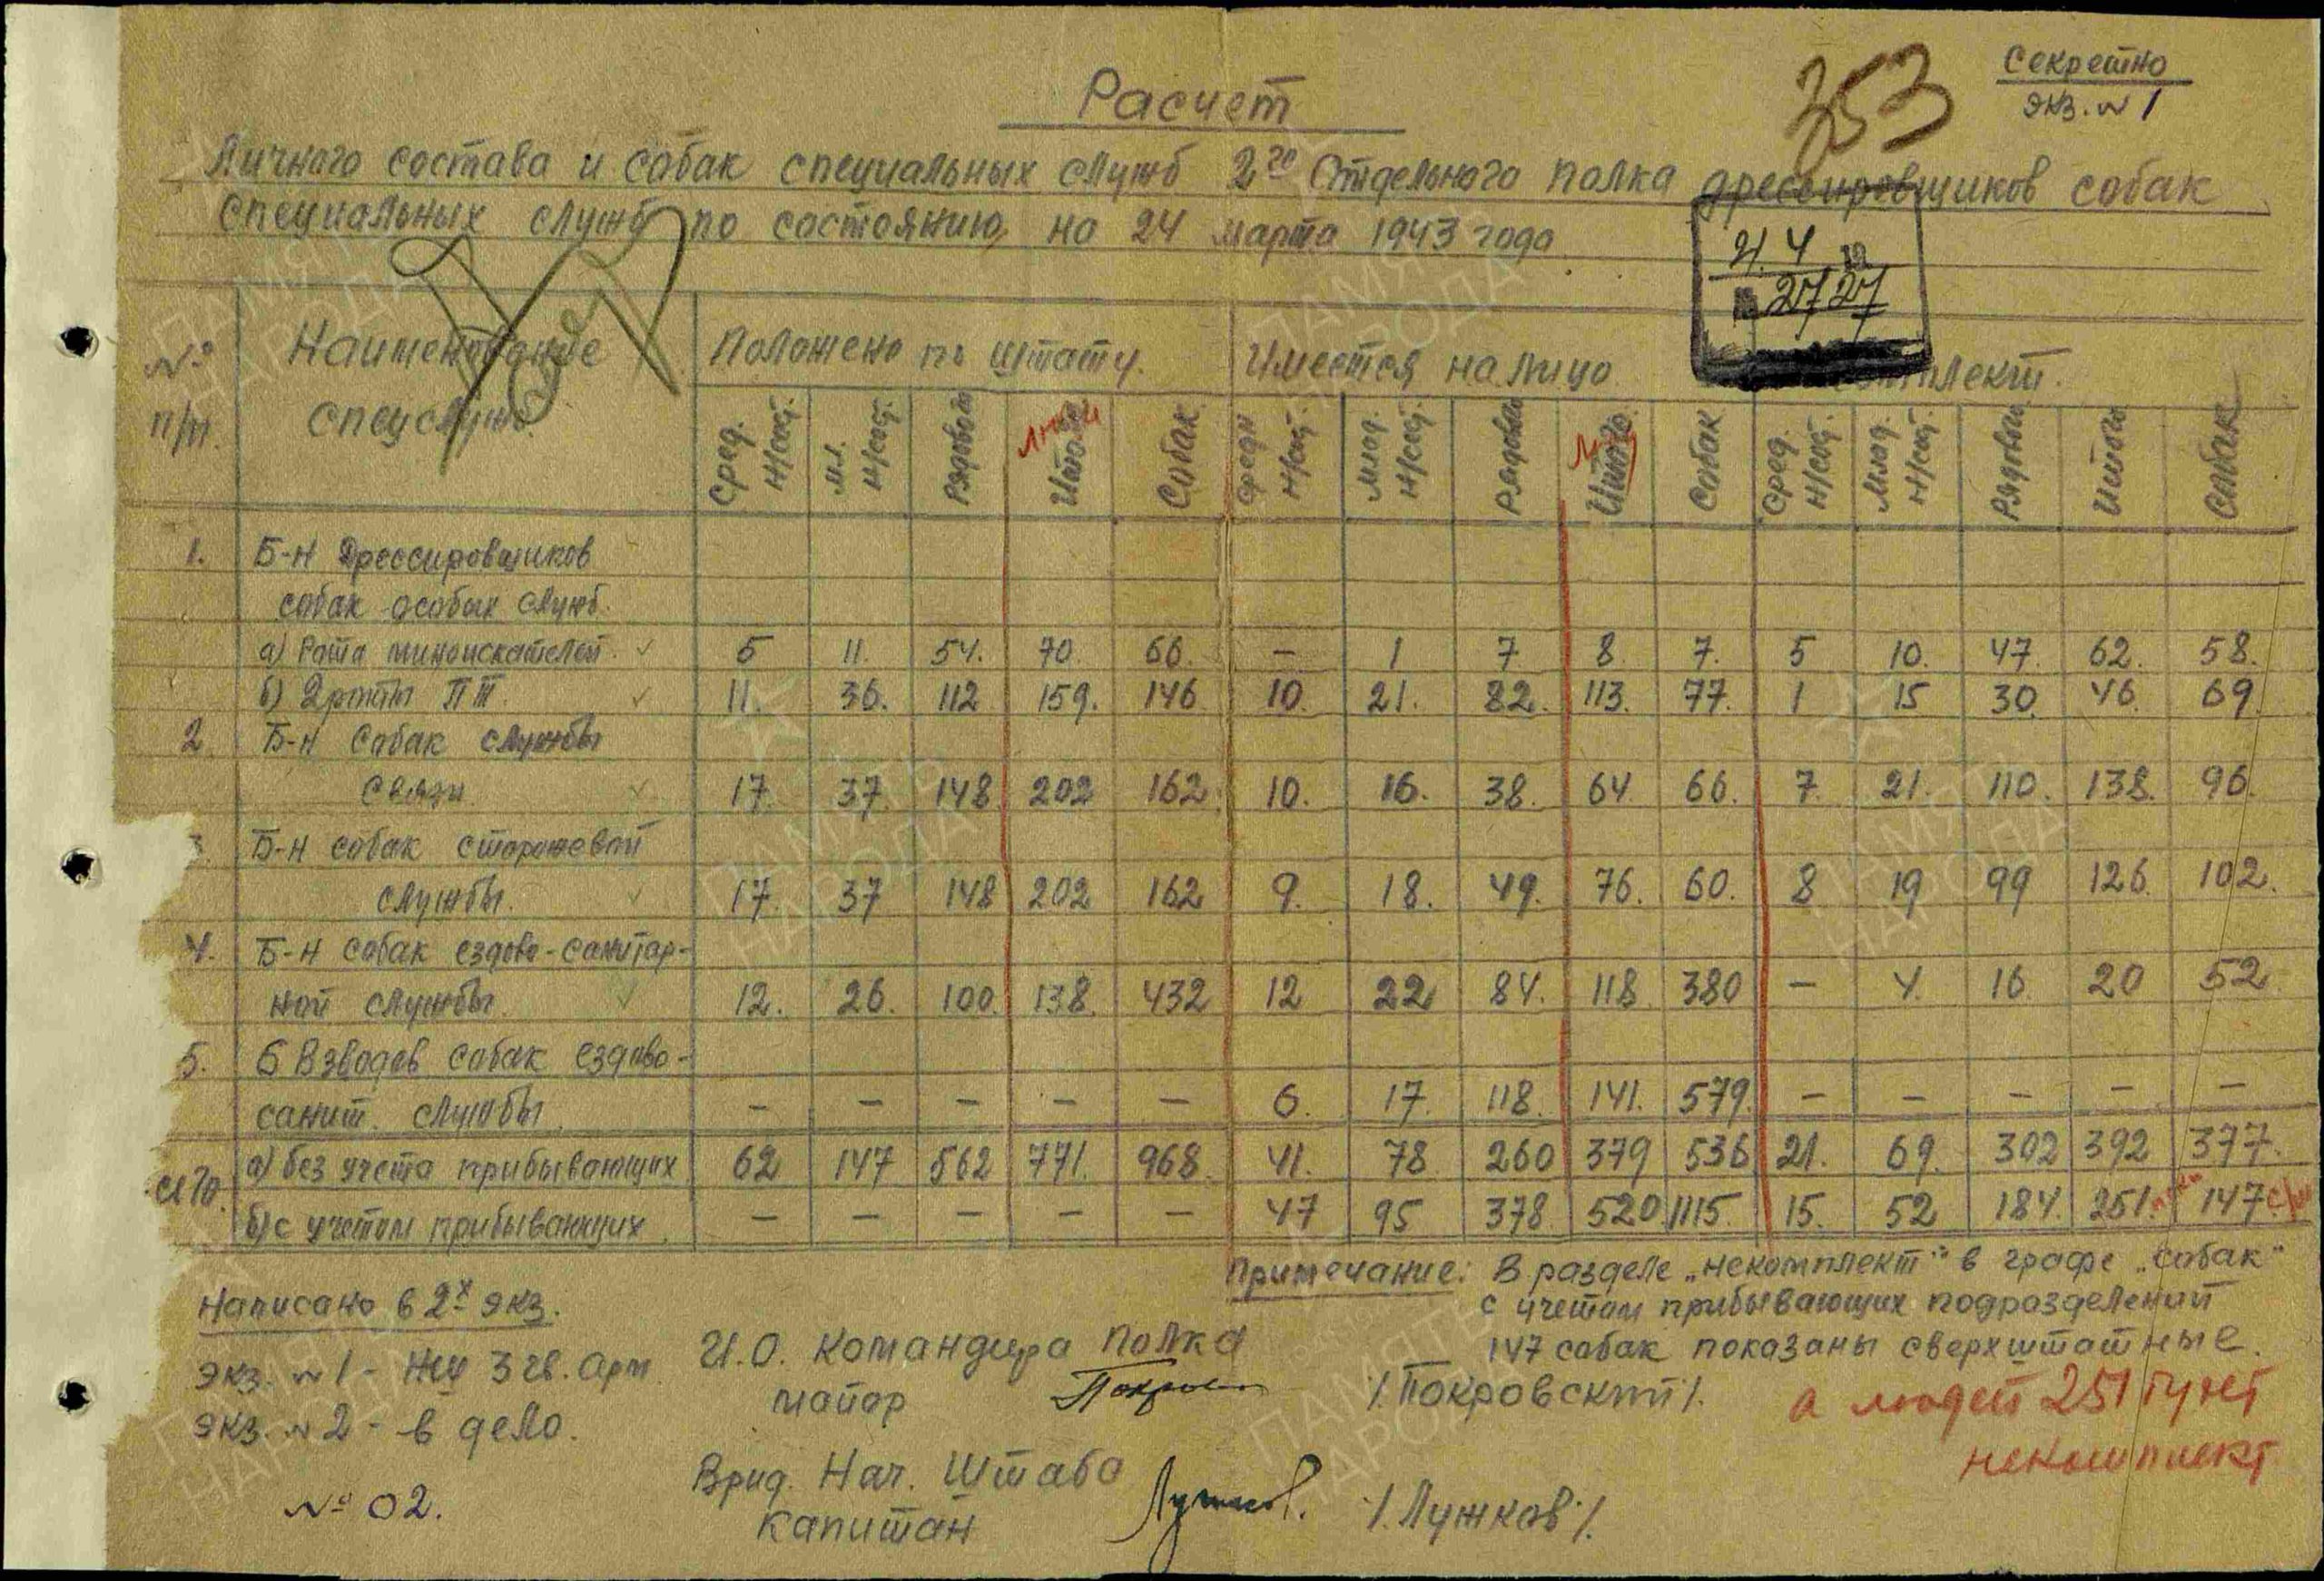 Секретно
экз. № 1
353
Расчет
Личного состава и собак специальных служб 2го Отдельного полка дрессировщиков собак
специальных служб по состоянию на 24 марта 1943 года
2727
№ п/п. Наименование спецслужб. Положено по штату. Имеется на лицо комплект.
Сред. н/сост. Мл. н/сост. Рядовых люди Итого Собак Средн н/сост. Млад. н/сост. Рядовых Итого Собак Сред. н/сост. Млад. н/сост. Рядовых Итого Собак
1. Б-н Дрессировщиков
собак особых служб.
а) Рота миноискателей. 5 11. 54. 70. 66. – 1 7 8 7. 5 10. 47. 62. 58.
б) 2 роты ПТ. 11. 36. 112 159. 146 10. 21. 82. 113. 77. 1 15 30. 46. 69.
2 Б-н Собак службы
связи. 17. 37. 148 202 162. 10. 16. 38. 64. 66. 7. 21. 110. 138. 96.
3. Б-н собак сторожевой
службы. 17. 37 148 202 162 9. 18. 49. 76. 60. 8 19 99 126. 102.
4. Б-н собак ездово-санитар-
ной службы. 12. 26. 100. 138. 432 12 22 84. 118 380 – 4. 16. 20 52.
5. 6 Взводов собак ездово-
санит. службы. – – – – – 6. 17. 118. 141. 579. – – – – –
а) без учета прибывающих 62 147 562 771. 968. 41. 78 260 379 536 21. 69. 302 392 377.
б) с учетом прибывающих. – – – – – 47 95 378. 520 1115. 15. 52 184. 251. 147.
Примечание: В разделе „некомплект" в графе „собак"
с учетом прибывающих подразделений
147 собак показаны сверхштатные.
а людей 251 некомплект
Написано в 2х экз.
экз. № 1 – 3 гв. Арм.
экз. № 2 – в дело.
№ 02.
И.О. Командира Полка
майор /Покровский/.
Врид. Нач. Штаба
Капитан /Лужков/.
ПАМЯТЬ
НАРОДА